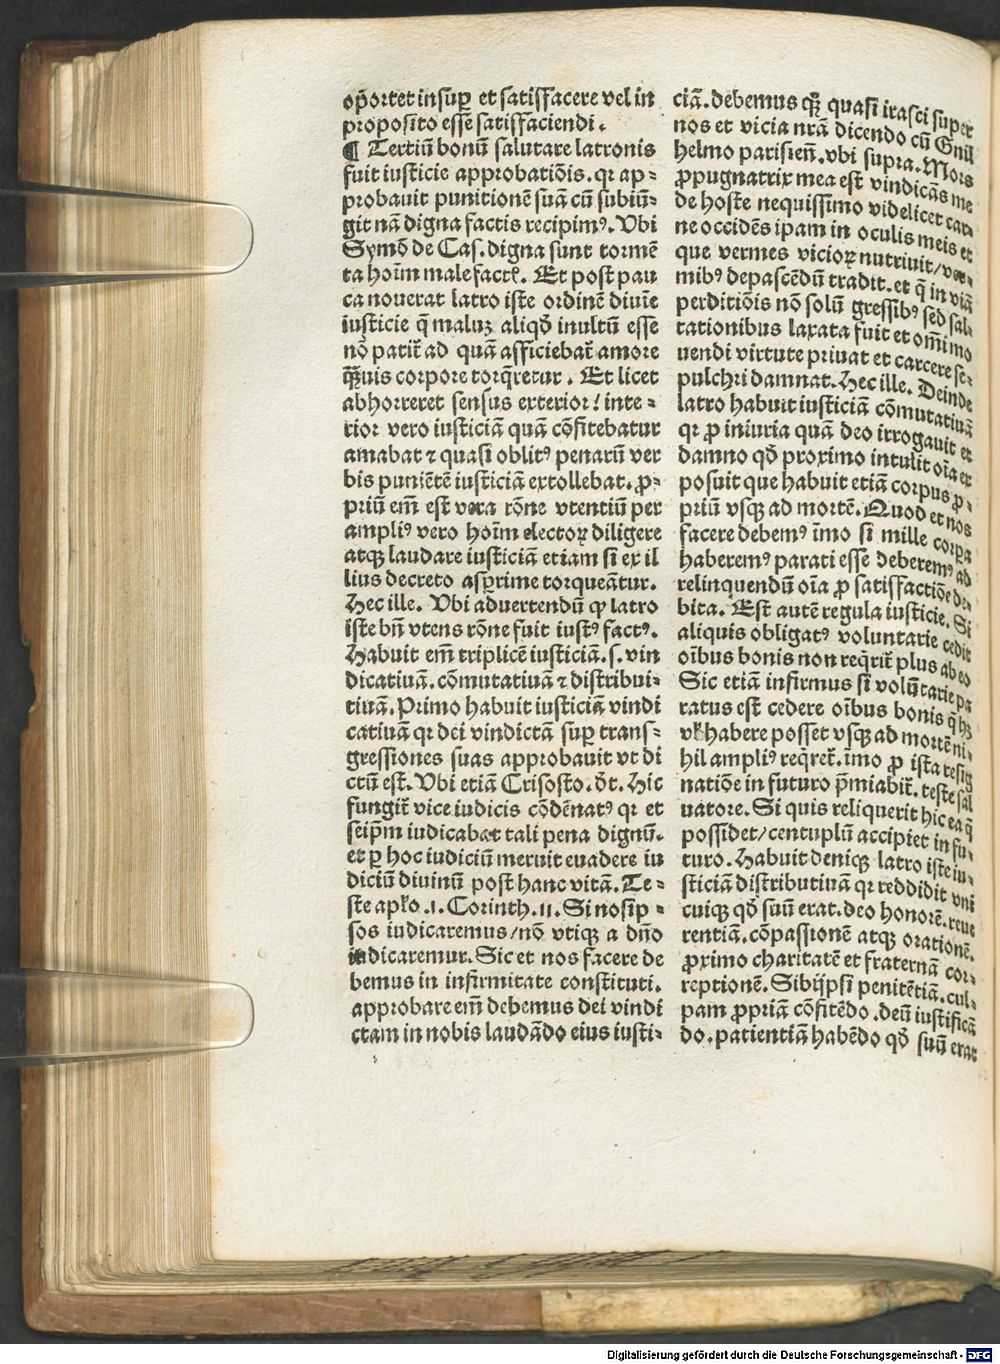 op̄ortet insuꝑ et satisfacere vel in
proposito esse satisfaciendi.
¶ Tertiū bonū salutare latronis
fuit iusticie approbatiōis. qr ap-
probauit punitionē suā cū subiū-
git nā digna factis recipimꝰ. Vbi
Symō de Cas. digna sunt tormē
ta hoīm malefactꝭ. Et post pau
ca nouerat latro iste ordinē diuīe
iusticie q̄ maluꝫ aliqd̄ inultū esse
nō patir̄ ad quā afficiebat̄ amore
q̄ꝫuis corpore torq̄retur. Et licet
abhorreret sensus exterior! inte-
rior vero iusticiā quā cōfitebatur
amabat ⁊ quasi oblitꝰ penarū ver
bis puniētē iusticiā extollebat. ꝓ-
priū em̄ est vera rōne vtentiū per
ampliꝰ vero hoīm electoꝝ diligere
atqꝫ laudare iusticiā etiam si ex il
lius decreto asꝑrime torqueātur.
Hec ille. Vbi aduertendū ꝙ latro
iste bn̄ vtens rōne fuit iustꝰ factꝰ.
Habuit em̄ triplicē iusticiā. s. vin
dicatiuā. cōmutatiuā ⁊ distribui-
tiuā. Primo habuit iusticiā vindi
catiuā qr dei vindictā suꝑ trans-
gressiones suas approbauit vt di
ctū est. Vbi etiā Crisosto. dt̄. Hic
fungit̄ vice iudicis cōdēnatꝰ qr et
seip̄m iudicabat tali pena dignū.
et ꝑ hoc iudiciū meruit euadere iu
diciū diuinū post hanc vitā. Te-
ste apl̄o .1. Corinth. 11. Si nosip-
sos iudicaremus/nō vtiqꝫ a dn̄o
iudicaremur. Sic et nos facere de
bemus in infirmitate constituti.
approbare em̄ debemus dei vindi
ctam in nobis laudādo eius iusti-
ciā. debemus qꝫ̄ quasi irasci super
nos et vicia nr̄a dicendo cū Guil
helmo parisien̄. vbi supra. Mors
ꝓpugnatrix mea est vindicās me
de hoste nequissimo videlicet car-
ne occidēs ipam in oculis meis et
que vermes vicioꝝ nutriuit/ver-
mibꝰ depascēdū tradit. et q̄ in viā
perditiōis nō solū gressibꝰ sed sal-
tationibus laxata fuit et om̄imo
uendi virtute priuat et carcere se-
pulchri damnat. Hec ille. Deinde
latro habuit iusticiā cōmutatiuā
qr ꝓ iniuria quā deo irrogauit et
damno qd̄ proximo intulit oīa ex
posuit que habuit etiā corpus ꝓ-
priū vsqꝫ ad mortē. Quod et nos
facere debemꝰ īmo si mille corpa
haberemꝰ parati esse deberemꝰ ad
relinquendū oīa ꝓ satisfactiōe de-
bita. Est autē regula iusticie. Si
aliquis obligatꝰ voluntarie cedit
oībus bonis non req̄rit̄ plus ab eo
Sic etiā infirmus si volūtarie pa
ratus est cedere oībus bonis q̄ hꝫ
vl̓ habere posset vsqꝫ ad mortē ni-
hil ampliꝰ req̄ret̄. īmo ꝓ ista resig
natiōe in futuro p̄miabit̄. teste sal
uatore. Si quis reliquerit hic ea q̄
possidet/centuplū accipiet in fu-
turo. Habuit deniqꝫ latro iste iu-
sticiā distributiuā qr reddidit vni
cuiqꝫ qd̄ suū erat. deo honorē. reue
rentiā. cōpassionē atqꝫ orationē.
ꝓximo charitatē et fraternā cor-
reptionē. Sibijpsi penitētiā. cul-
pam ꝓpriā cōfitēdo. deū iustificā
do. patientiā habēdo qd̄ suū erat
Digitalisierung gefördert durch die Deutsche Forschungsgemeinschaft - DFG